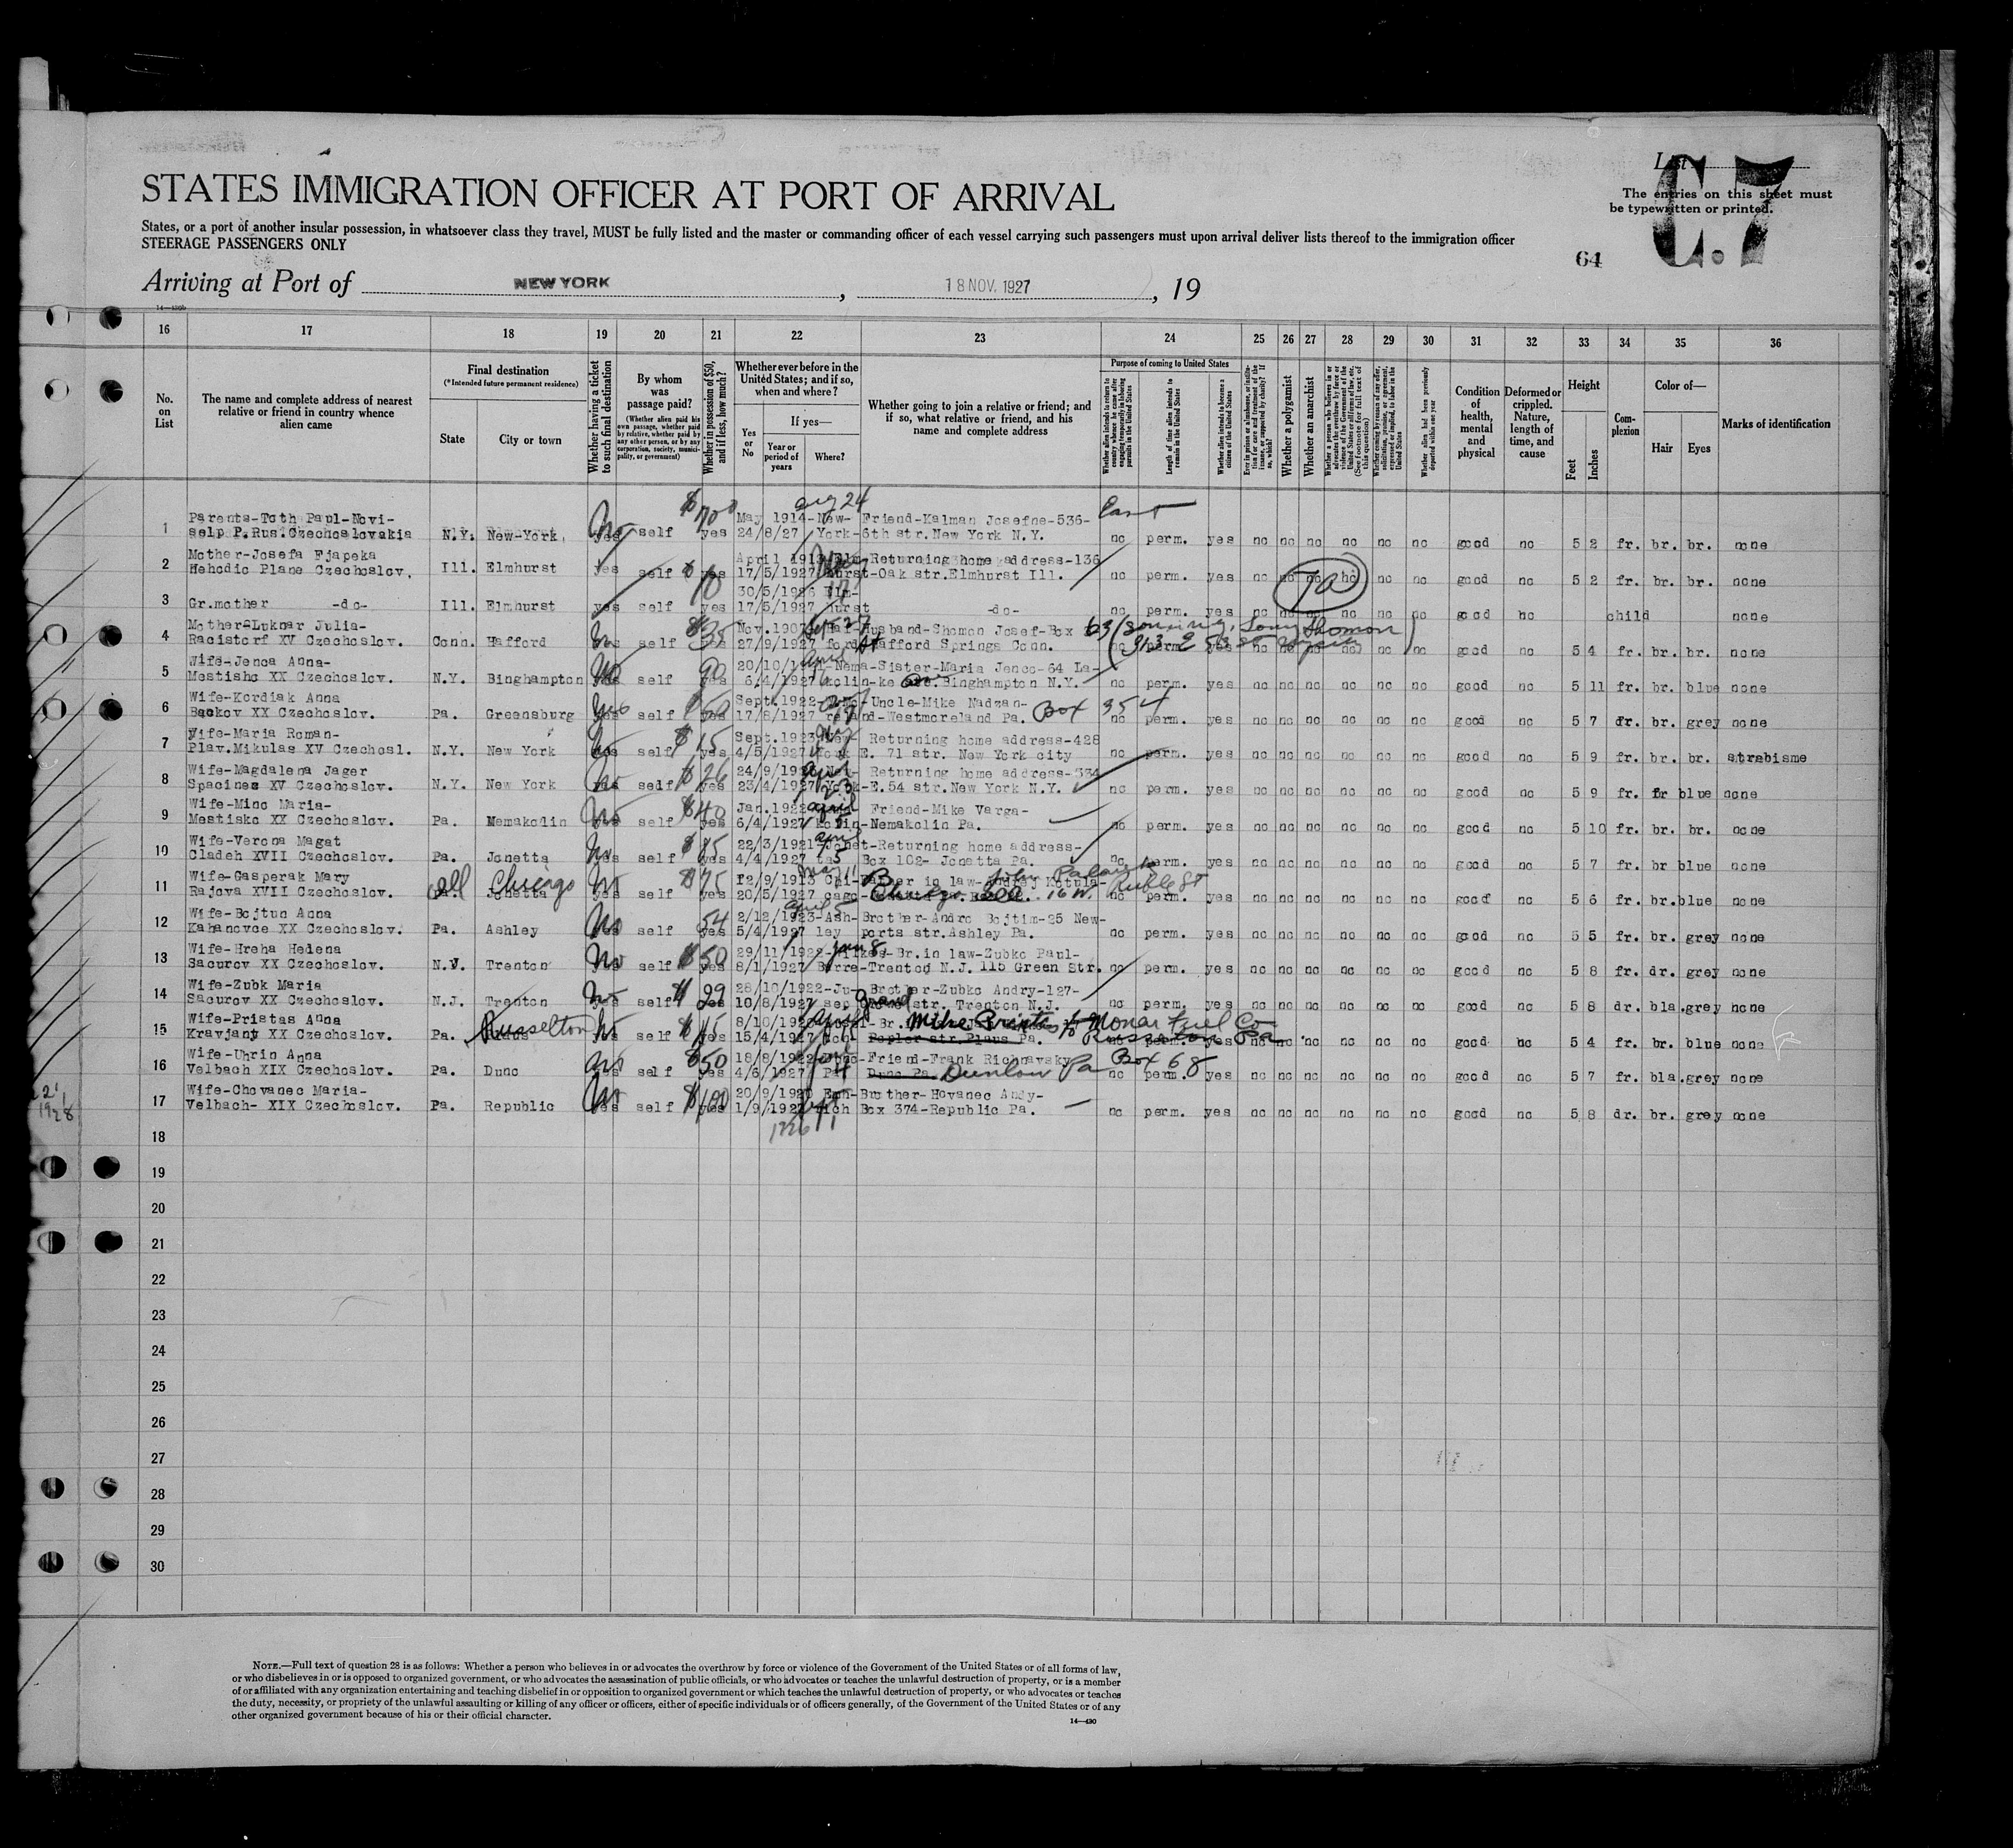 List
C.7
The entries on this sheet must
be typewritten or printed.
64
STATES IMMIGRATION OFFICER AT PORT OF ARRIVAL
States, or a port of another insular possession, in whatsoever class they travel, MUST be fully listed and the master or commanding officer of each vessel carrying such passengers must upon arrival deliver lists thereof to the immigration officer
STEERAGE PASSENGERS ONLY
Arriving at Port of NEW YORK, 18 NOV. 1927, 19
16 17 18 19 20 21 22 23 24 25 26 27 28 29 30 31 32 33 34 35 36
No. on List
The name and complete address of nearest relative or friend in country whence alien came
Final destination
(*Intended future permanent residence)
State
City or town
Whether having a ticket to such final destination
By whom was passage paid?
(Whether alien paid his own passage, whether paid by relative, whether paid by any other person, or by any corporation, society, municipality, or government)
Whether in possession of $50, and if less, how much?
Whether ever before in the United States; and if so, when and where?
Yes or No
If yes—
Year or period of years
Where?
Whether going to join a relative or friend; and if so, what relative or friend, and his name and complete address
Purpose of coming to United States
Whether alien intends to return to country whence he came after engaging temporarily in laboring pursuits in the United States
Length of time alien intends to remain in the United States
Whether alien intends to become a citizen of the United States
Ever in prison or almshouse, or institution for care and treatment of the insane, or supported by charity? If so, which?
Whether a polygamist
Whether an anarchist
Whether a person who believes in or advocates the overthrow by force or violence of the Government of the United States or all forms of law, etc. (See footnote for full text of this question)
Whether coming by reason of any offer, solicitation, promise, or agreement, expressed or implied, to labor in the United States
Whether alien had been previously deported within one year
Condition of health, mental and physical
Deformed or crippled. Nature, length of time, and cause
Height
Feet
Inches
Complexion
Color of—
Hair
Eyes
Marks of identification
aug 24
1 Parents-Toth Paul-Novi- $700 May 1914-New- Friend-Kalman Josefne-536- East
selp P.Rus.Czechoslovakia N.Y. New-York, No yes self yes 24/8/27 York-6th str.New York N.Y. no perm. yes no no no no no no good no 5 2 fr. br. br. none
2 Mother-Josefa Fjapeka April 1913 Elm-Returning home address-136
Hehodic Plane Czechoslov. Ill. Elmhurst yes self yes 17/5/1927 hurst-Oak str.Elmhurst Ill. no perm. yes no no no no no no good no 5 2 fr. br. br. none
30/5/1926 Elm-
3 Gr.mother -do- Ill. Elmhurst yes self 10 yes 17/5/1927 hurst -do- no perm. yes no no no no no good no child none
4 Mother-Luknar Julia- $35 Nov.1907 Haf-Husband-Shomon Josef-Box 63
Racistorf XV Czechoslov. Conn. Hafford yes self yes 27/9/1927 ford Stafford Springs Conn. 313 E 53 St no perm. yes no no no no no no good no 5 4 fr. br. br. none
5 Wife-Jenca Anna- 90 Nema-Sister-Maria Jenco-64 La-
Mestisko XX Czechoslov. N.Y. Binghampton No yes self yes 6/4/1927 kolin-ke Ave. Binghampton N.Y. no perm. yes no no no no no no good no 5 11 fr. br. blue none
6 Wife-Kordiak Anna $60 Sept.1922 Uncle-Mike Nadzan-
Backov XX Czechoslov. Pa. Greensburg yes self yes 17/8/1927 land-Westmoreland Pa. Box 354 no perm. yes no no no no no no good no 5 7 dr. br. grey none
7 Wife-Maria Roman- $15 Sept.1923 New- Returning home address-428
Plav.Mikulas XV Czechosl. N.Y. New York No yes self yes 4/5/1927 York E. 71 str. New York city no perm. yes no no no no no no good no 5 9 fr. br. br. strabisme
8 Wife-Magdalena Jager $26 Returning home address-334
Spacince XV Czechoslov. N.Y. New York No yes self yes 23/4/1927 York-E.54 str.New York N.Y. no perm. yes no no no no no no good no 5 9 fr. br blue none
9 Wife-Minc Maria- $40 Jan.1922 april Friend-Mike Varga-
Mestisko XX Czechoslov. Pa. Nemakolin No yes self yes 6/4/1927 kolin-Nemakolin Pa. no perm. yes no no no no no no good no 5 10 fr. br. br. none
10 Wife-Verona Magat $85 22/3/1921 Jonet-Returning home address-
Cladeh XVII Czechoslov. Pa. Jonetta No yes self yes 4/4/1927 ta Box 102- Jonetta Pa. no perm. yes no no no no no no good no 5 7 fr. br blue none
11 Wife-Gasperak Mary Ill Chicago $75 12/9/1913 Chi-Father in law-Andrej Kotula- John
Rajova XVII Czechoslov. Pa. Jonetta No yes self yes 20/5/1927 cago- 16 W. Ruble St no perm. yes no no no no no no good no 5 6 fr. br.blue none
12 Wife-Bojtun Anna 54 2/12/1923-Ash-Brother-Andro Bojtim-25 New-
Kahanovce XX Czechoslov. Pa. Ashley No yes self yes 5/4/1927 ley ports str.Ashley Pa. no perm. yes no no no no no no good no 5 5 fr. br. grey none
13 Wife-Hreha Helena $50 29/11/1922-Wilkes-Br.in law-Zubko Paul-
Sacurov XX Czechoslov. N.J. Trenton No yes self yes 8/1/1927 Barre-Trenton N.J. 115 Green Str. no perm. yes no no no no no no good no 5 8 fr. dr. grey none
14 Wife-Zubk Maria $29 28/10/1922-Ju- Brother-Zubko Andry-127-
Sacurov XX Czechoslov. N.J. Trenton No yes self yes 10/8/1927 sep Grand str. Trenton N.J. no perm. yes no no no no no no good no 5 8 dr. bla.grey none
15 Wife-Pristas Anna Russelton $15 Mike Monar Fuel Co
Kravjany XX Czechoslov. Pa. No yes self yes 15/4/1927 Popler str. Plaus Pa. Russelton Pa no perm. yes no no no no no good no 5 4 fr. br. blue none
16 Wife-Uhrin Anna $50 18/8/1922 Friend-Frank Richnavsky Box 68
Velbach XIX Czechoslov. Pa. Dunc No yes self yes 4/6/1927 Dunc Pa. Dunlow Pa no perm. yes no no no no no no good no 5 7 fr. bla.grey none
17 Wife-Chovanec Maria- $100 Brother-Hovanec Andy-
Velbach- XIX Czechoslov. Pa. Republic No yes self yes 1/9/1927 Box 374-Republic Pa. no perm. yes no no no no no no good no 5 8 dr. br. grey none
1926
18
19
20
21
22
23
24
25
26
27
28
29
30
NOTE.—Full text of question 28 is as follows: Whether a person who believes in or advocates the overthrow by force or violence of the Government of the United States or of all forms of law,
or who disbelieves in or is opposed to organized government, or who advocates the assassination of public officials, or who advocates or teaches the unlawful destruction of property, or is a member
of or affiliated with any organization entertaining and teaching disbelief in or opposition to organized government or which teaches the unlawful destruction of property, or who advocates or teaches
the duty, necessity, or propriety of the unlawful assaulting or killing of any officer or officers, either of specific individuals or of officers generally, of the Government of the United States or of any
other organized government because of his or their official character.
14—430